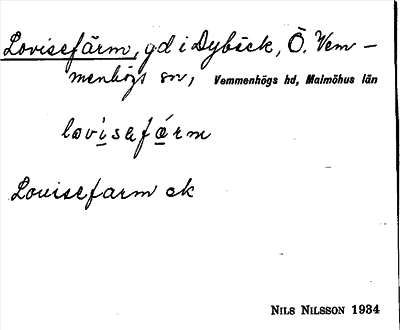 Lovisefärm, gd i Dybäck, Ö. Vem-
menhögs sn, Vemmenhögs hd, Malmöhus län
lovisefärm
Louisefarm ek
NILS NILSSON 1934